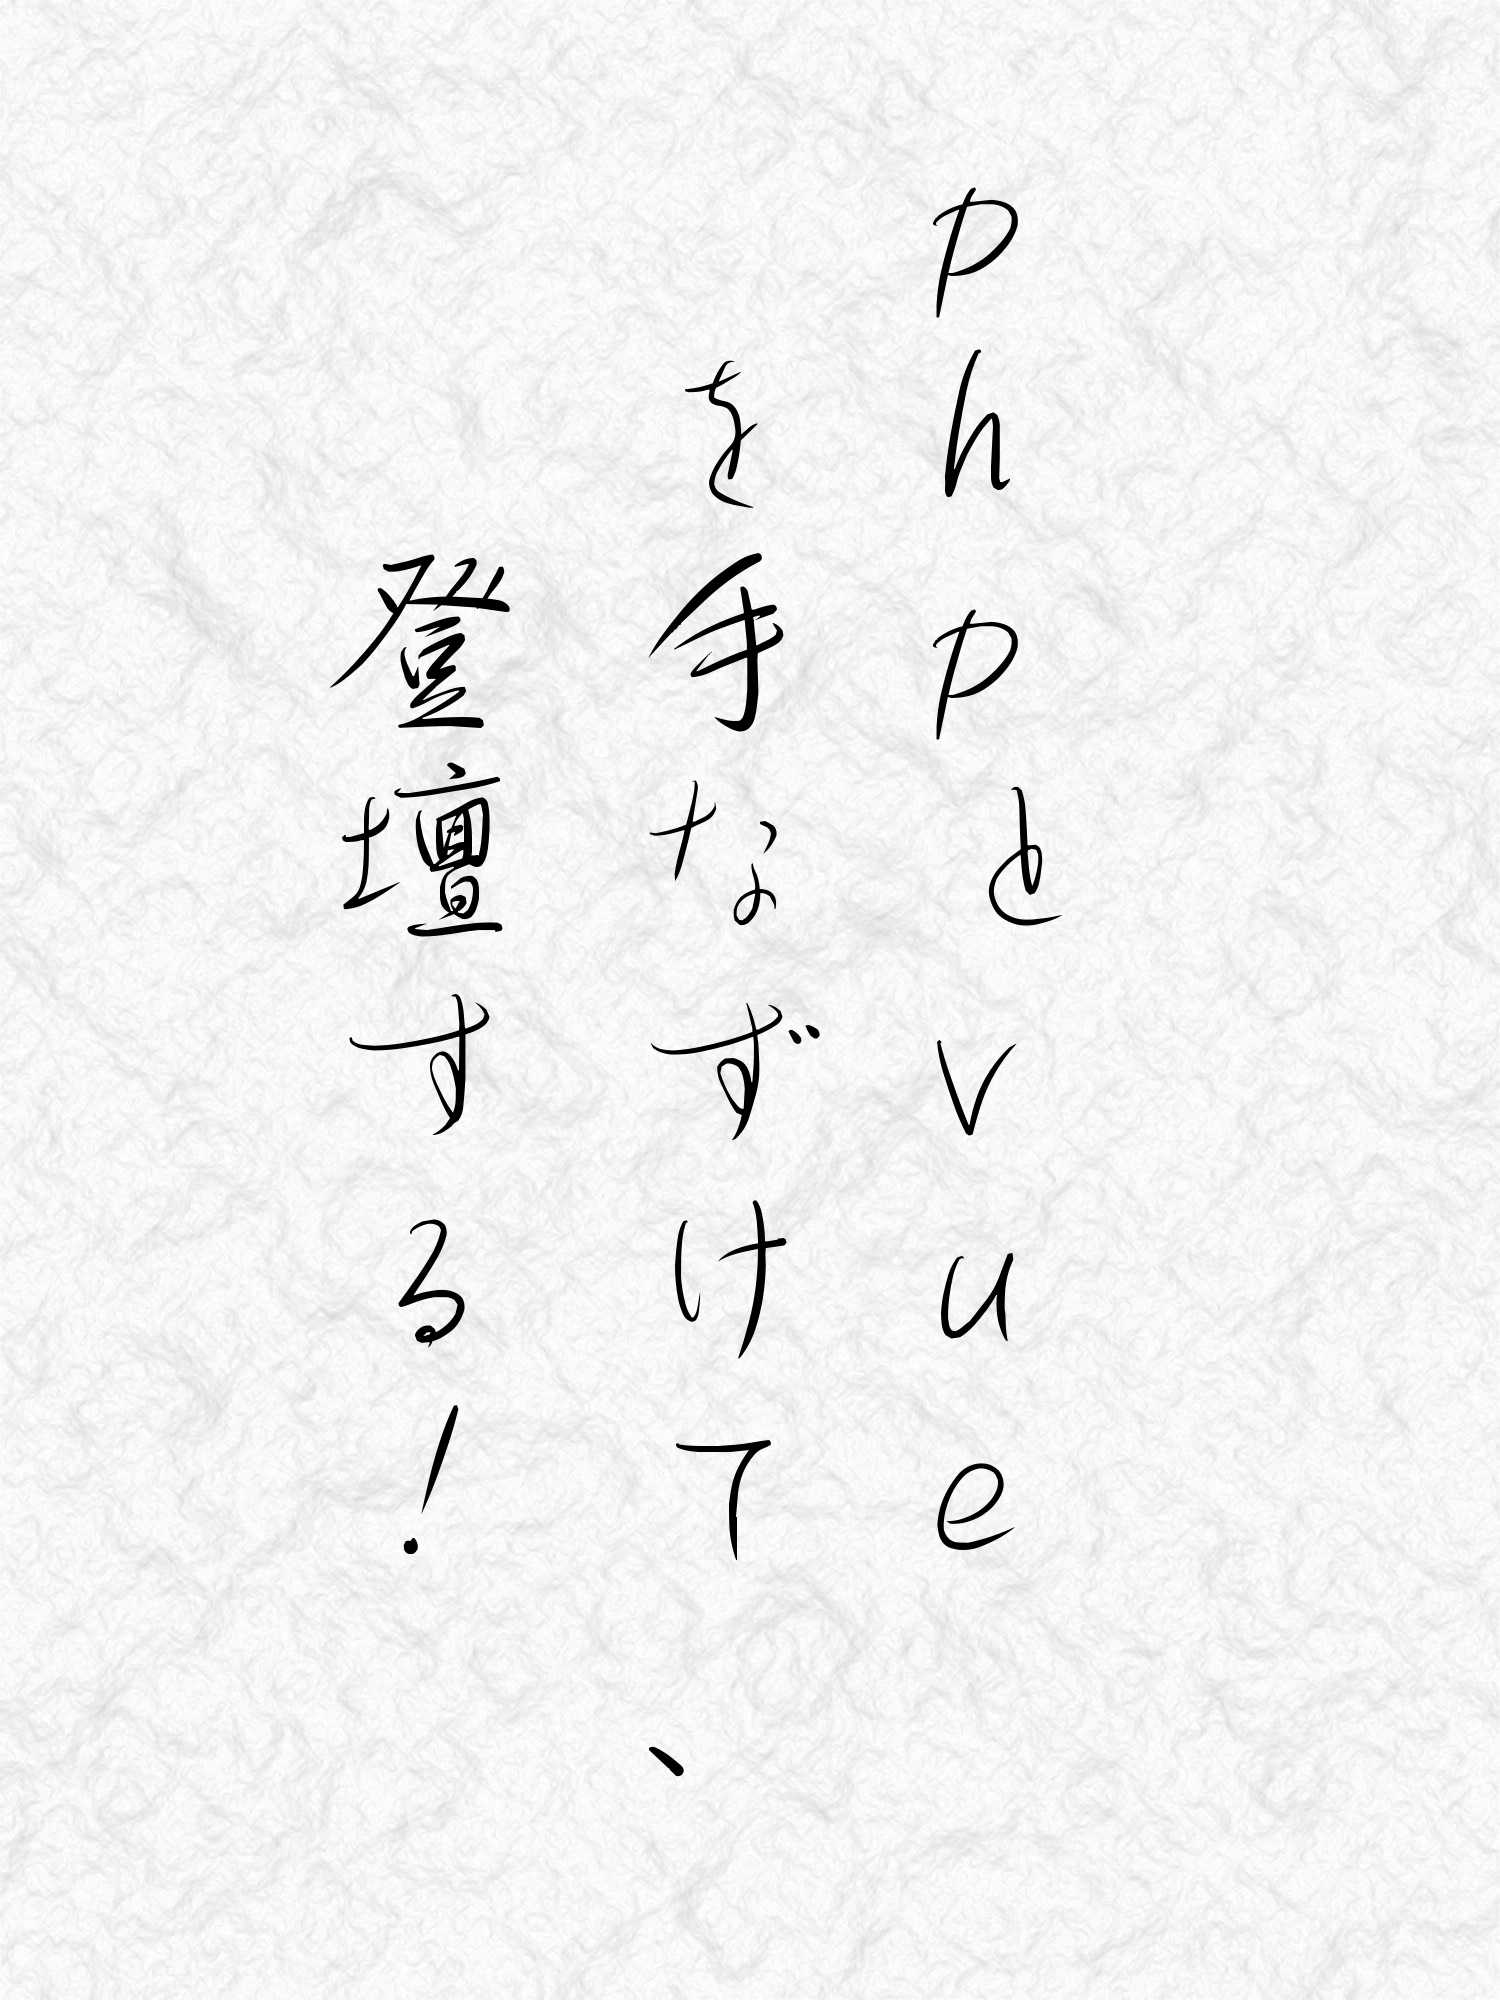 phpとvue
を手なずけて、
登壇する!